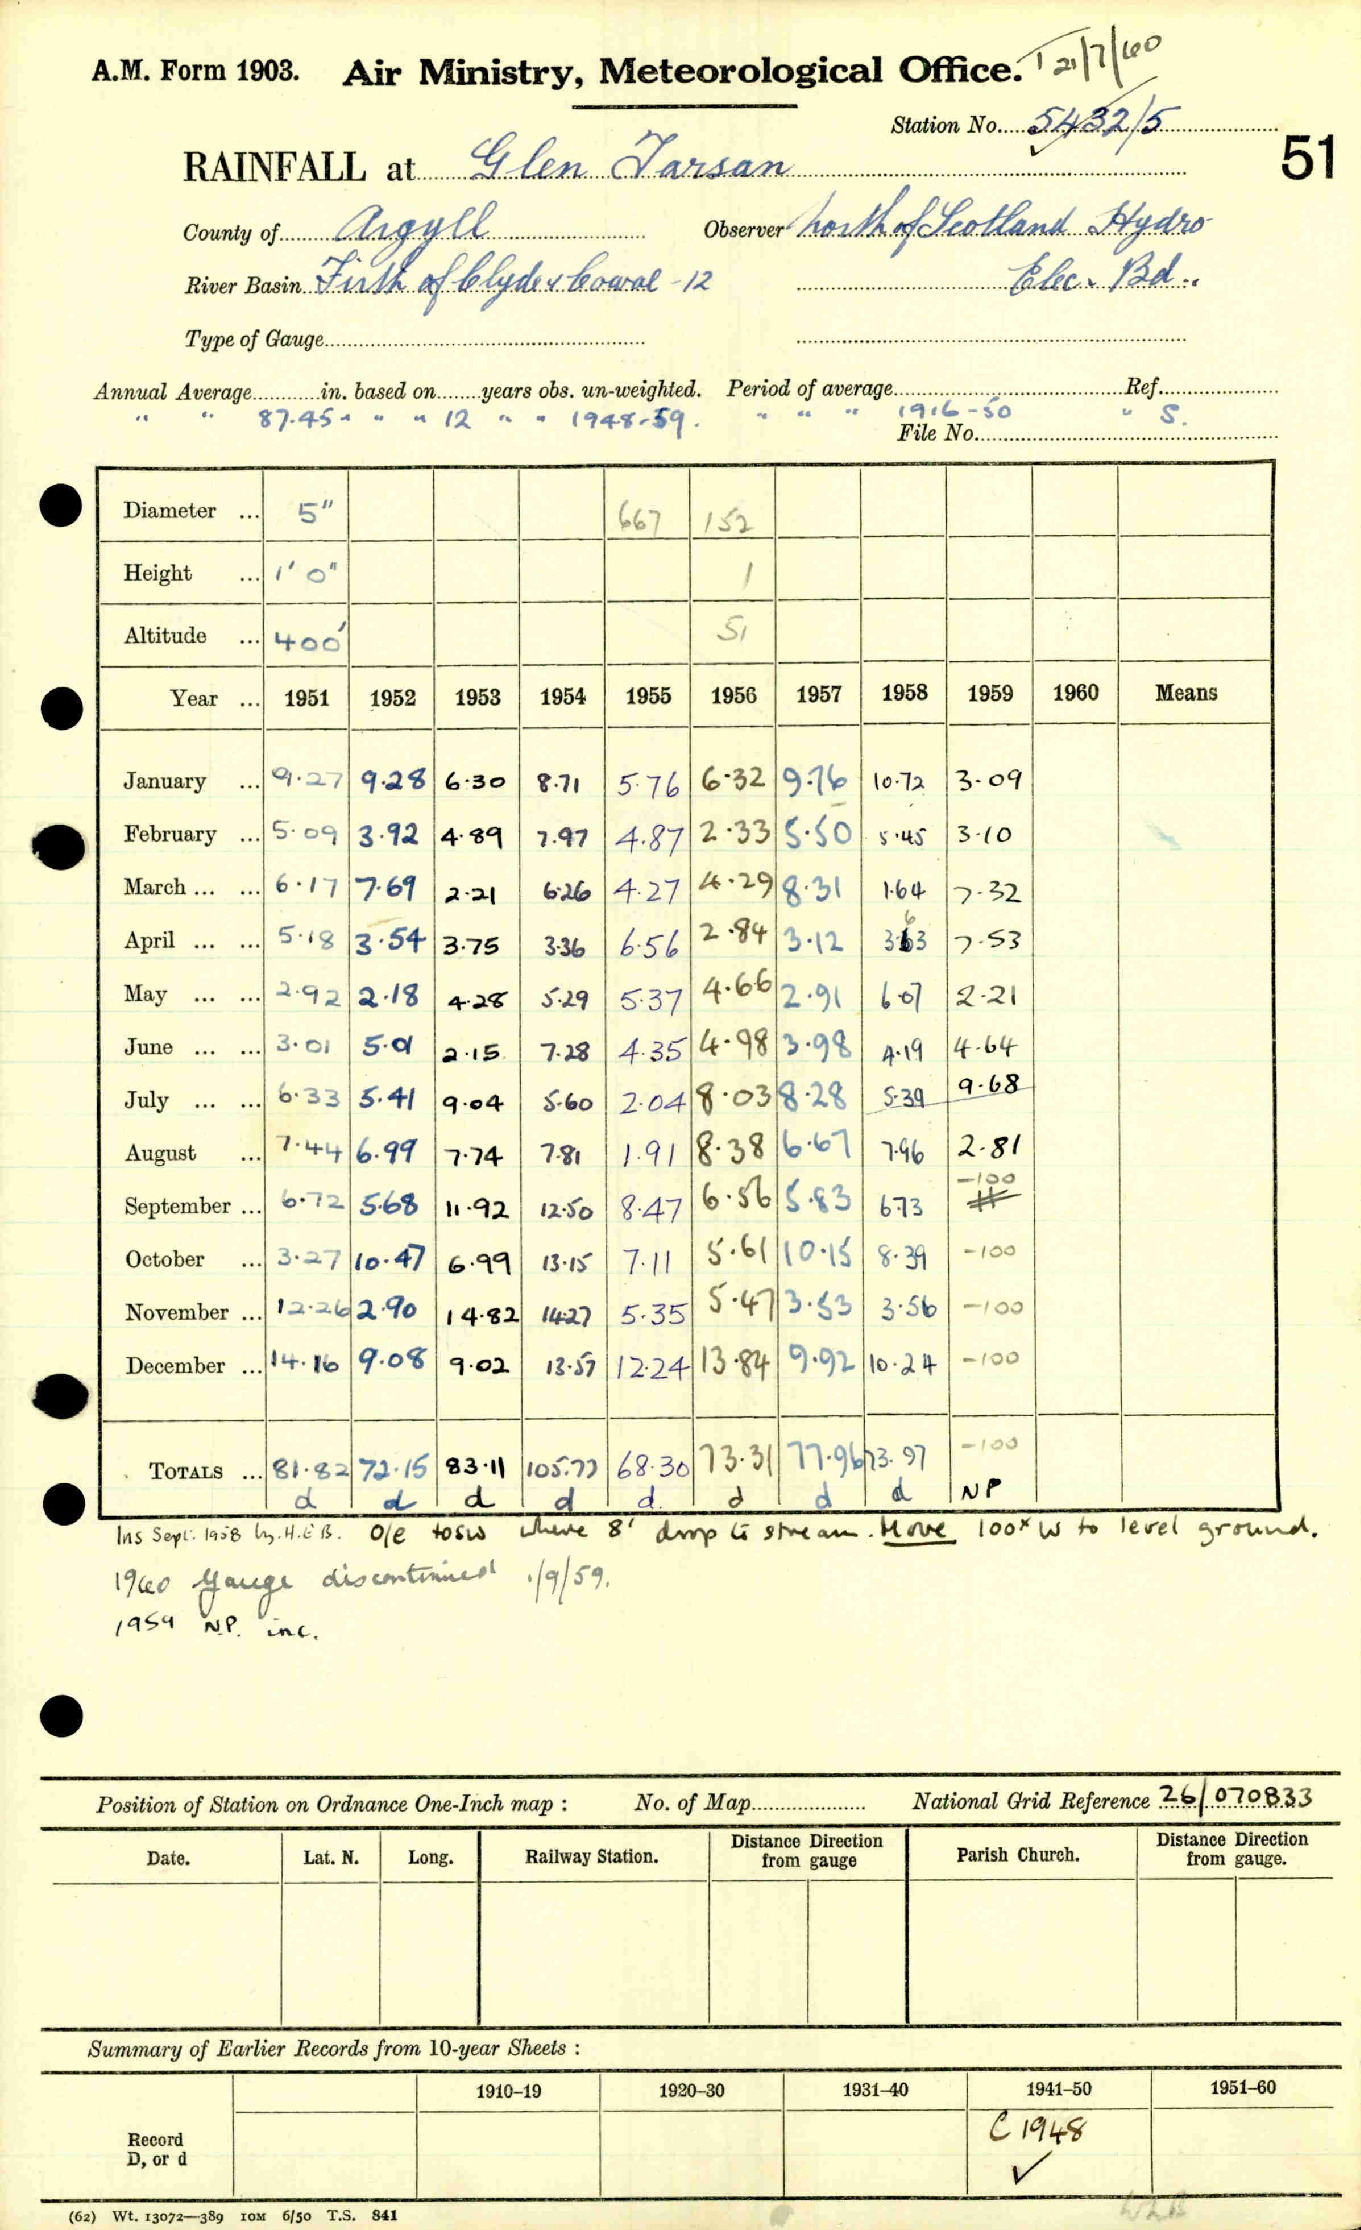 A.M. Form 1903. Air Ministry, Meteorological Office. T 21/7/60
Station No. 5432/5
51
RAINFALL at Glen Tarsan
County of Argyll Observer North of Scotland Hydro
River Basin Firth of Clyde & Cowal - 12 Elec. Bd.
Type of Gauge
Annual Average in. based on years obs. un-weighted. Period of average Ref.
" " 87.45 " " " 12 " " 1948-59. " " " 1916-50 " S.
File No.
Diameter ... 5" 667 152
Height ... 1' 0" 1
Altitude ... 400' 51
Year ... 1951 1952 1953 1954 1955 1956 1957 1958 1959 1960 Means
January ... 9.27 9.28 6.30 8.71 5.76 6.32 9.76 10.72 3.09
February ... 5.09 3.92 4.89 7.97 4.87 2.33 5.50 5.45 3.10
March ... ... 6.17 7.69 2.21 6.26 4.27 4.29 8.31 1.64 7.32
April ... ... 5.18 3.54 3.75 3.36 6.56 2.84 3.12 3.63 7.53
May ... ... 2.92 2.18 4.28 5.29 5.37 4.66 2.91 6.07 2.21
June ... ... 3.01 5.01 2.15 7.28 4.35 4.98 3.98 4.19 4.64
July ... ... 6.33 5.41 9.04 5.60 2.04 8.03 8.28 5.39 9.68
August ... 7.44 6.99 7.74 7.81 1.91 8.38 6.67 7.96 2.81
September ... 6.72 5.68 11.92 12.50 8.47 6.56 5.83 6.73 -100
October ... 3.27 10.47 6.99 13.15 7.11 5.61 10.15 8.39 -100
November ... 12.26 2.90 14.82 14.27 5.35 5.47 3.53 3.56 -100
December ... 14.16 9.08 9.02 13.57 12.24 13.84 9.92 10.24 -100
TOTALS ... 81.82 72.15 83.11 105.77 68.30 73.31 77.96 73.97 -100
d d d d d d d d NP
Ins Sept. 1958 by H.E.B. O/e to SW where 8' drop to stream. Move 100x W to level ground.
1960 Gauge discontinued 1/9/59.
1959 N.P. inc.
Position of Station on Ordnance One-Inch map : No. of Map National Grid Reference 26/070833
Date. Lat. N. Long. Railway Station. Distance Direction from gauge Parish Church. Distance Direction from gauge.
Summary of Earlier Records from 10-year Sheets :
1910–19 1920–30 1931–40 1941–50 1951–60
Record D, or d C 1948 ✓
(62) Wt. 13072—389 10M 6/50 T.S. 841